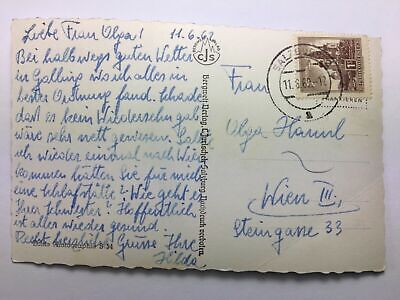 Liebe Frau Olga! 11.6.62
Bei halbwegs guten Wetter
in wo ich alles in
bester Ordnung fand. Schade
daß es kein Wiedersehn gab
wäre sehr nett gewesen. Sollte
ich wieder einmal nach Wien
kommen hätten Sie für mich
eine Schlafstätte? Wie geht es
Ihrer Schwester? Hoffentlich
ist alles wieder gesund.
Recht herzliche Grüsse Ihre
Hilda
CJS
Bergwelt-Verlag C. Jurischek Salzburg. Nachdruck verboten
SALZBURG
11.6.62-17
a
Frau
Olga
Wien III,
Steingasse 33